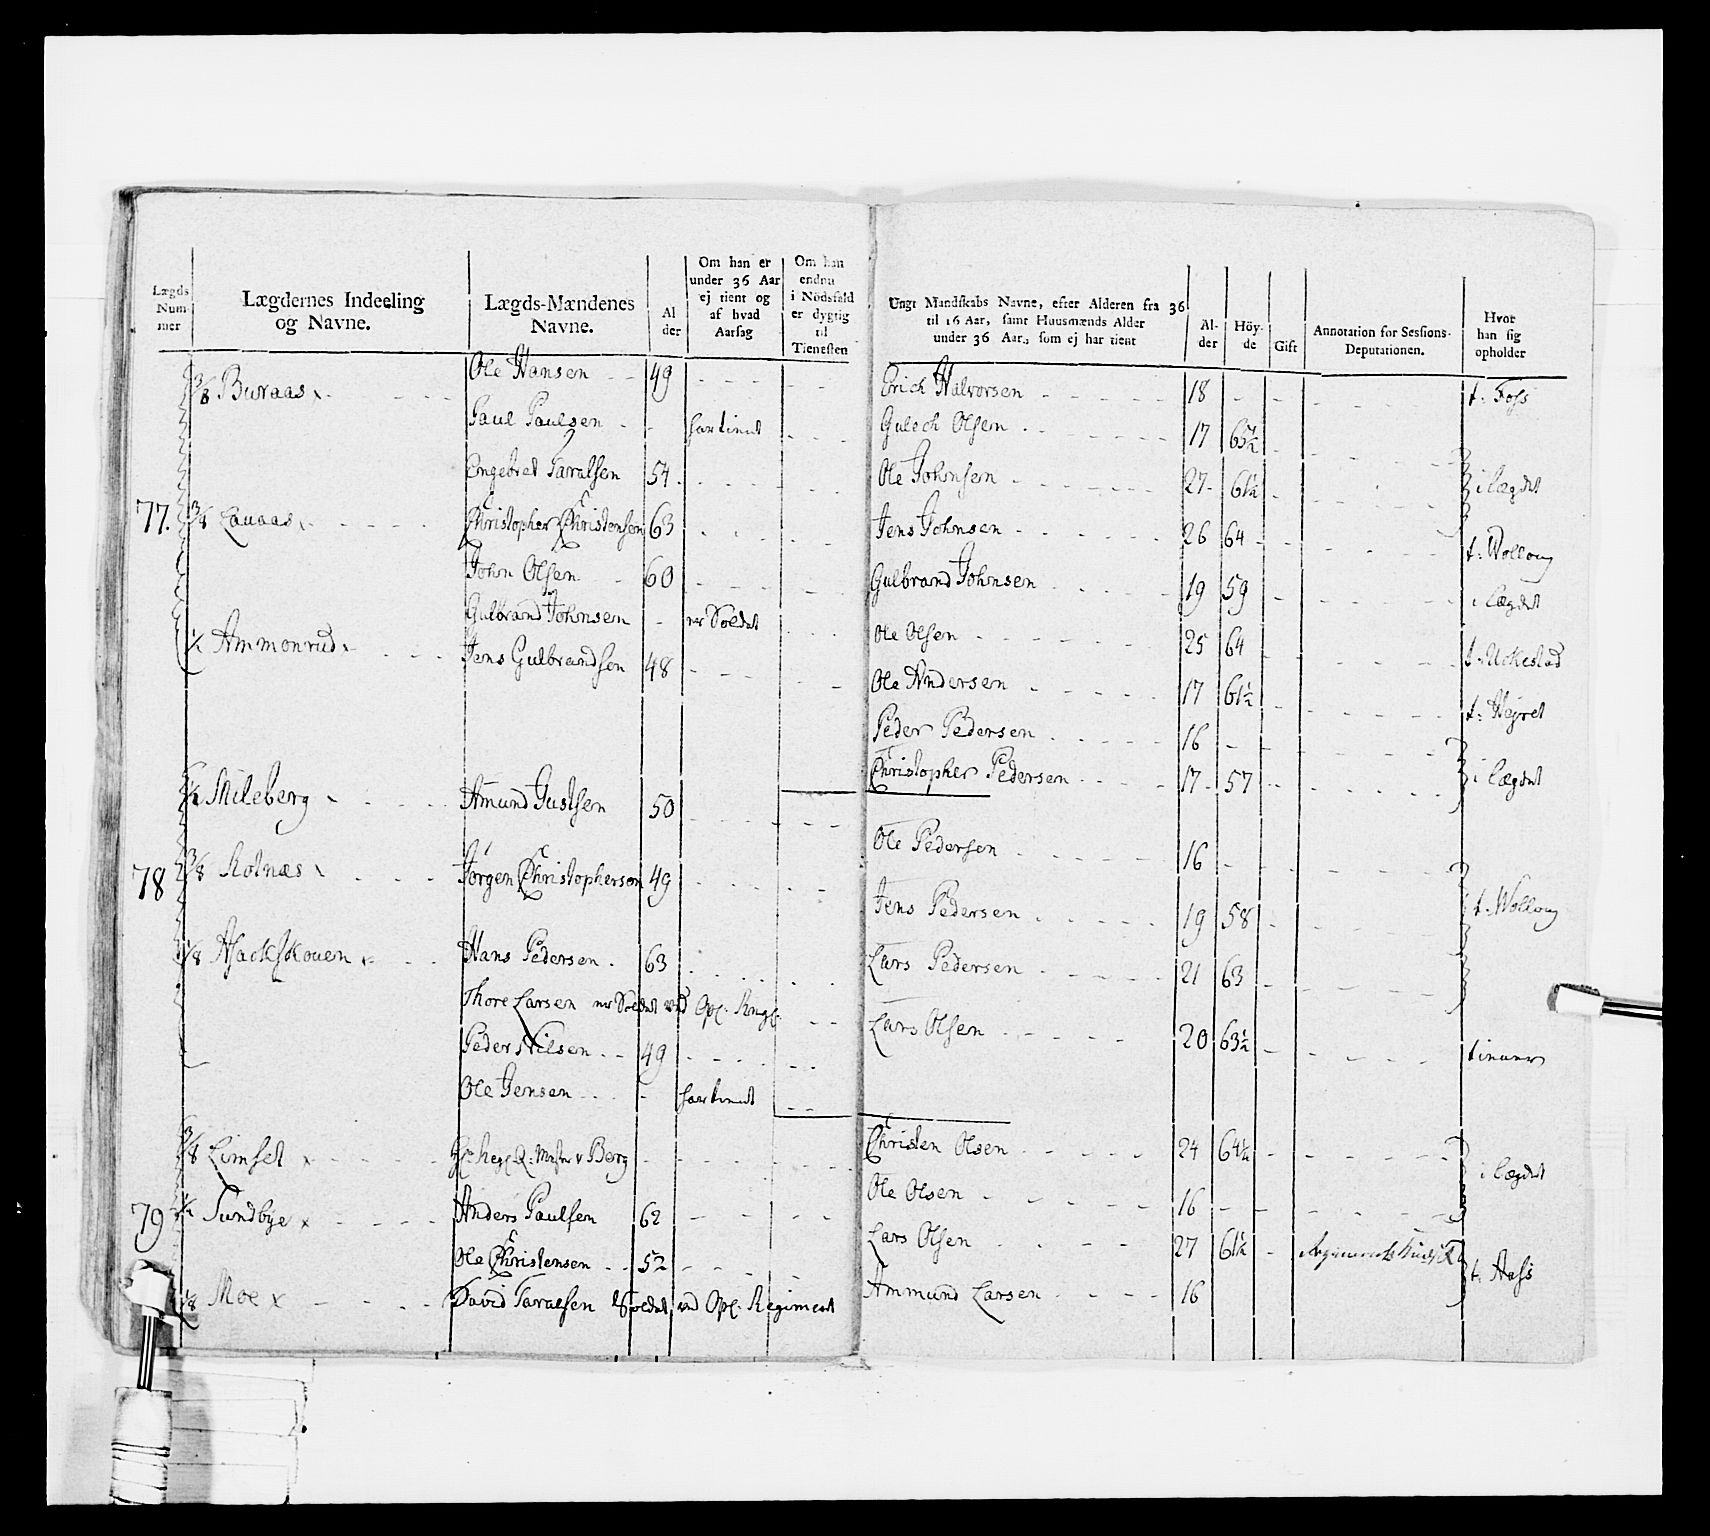 Lægds Num- mer
Lægdernes Indeeling og Navne.
Lægds-Mændenes Navne.
Al der
Om han er under 36 Aar ej tient og af hvad Aarsag
Om han endnu i Nödsfald er dygtig til Tienesten
Ungt Mandskabs Navne, efter Alderen fra 36 til 16 Aar, samt Huusmænds Alder under 36 Aar, som ej har tient
Al- der
Höy- de
Gift
Annotation for Sessions- Deputationen.
Hvor han sig opholder
3/8 Buraas Ole Hansen 49
Paul Paulsen har tient
Engebret Taralsen 54
77. 3/8 Lauaas Christopher Christensen 63
John Olsen 60
Gulbrand Johnsen er Soldat
1/4 Ammonrud Jens Gulbrandsen 48
Mileberg Amund Gustsen 50
78 3/8 Rolnæs Jørgen Christophersen 49
1/8 Asackskouen Hans Pedersen 63
Thore Larsen er Soldat ved Opl: Regt:
Peder Nilsen 49
Ole Jensen har tient
3/8 Limset Berg
79 Sundbye Anders Paulsen 62
Ole Christensen 52
1/8 Moe David Taralsen Soldat ved Opl: Regiment
Erich Halvorsen 18 t: Foss
Gulech Olsen 17
Ole Johnsen 27 61½ i Lægdet
Jens Johnsen 26 64 t: Wollong
Gulbrand Johnsen 19 59 i Lægdet
Ole Olsen 25 64
Ole Andersen 17 61½ t:
Peder Pedersen 16
Christopher Pedersen 17 57 i Lægdet
Ole Pedersen 16
Jens Pedersen 19 58 t: Wollong
Lars Pedersen 21 63
Lars Olsen 20 63½
Christen Olsen 24 i Lægdet
Ole Olsen 16
Lars Olsen 27 61½
Ammund Larsen 16 t: